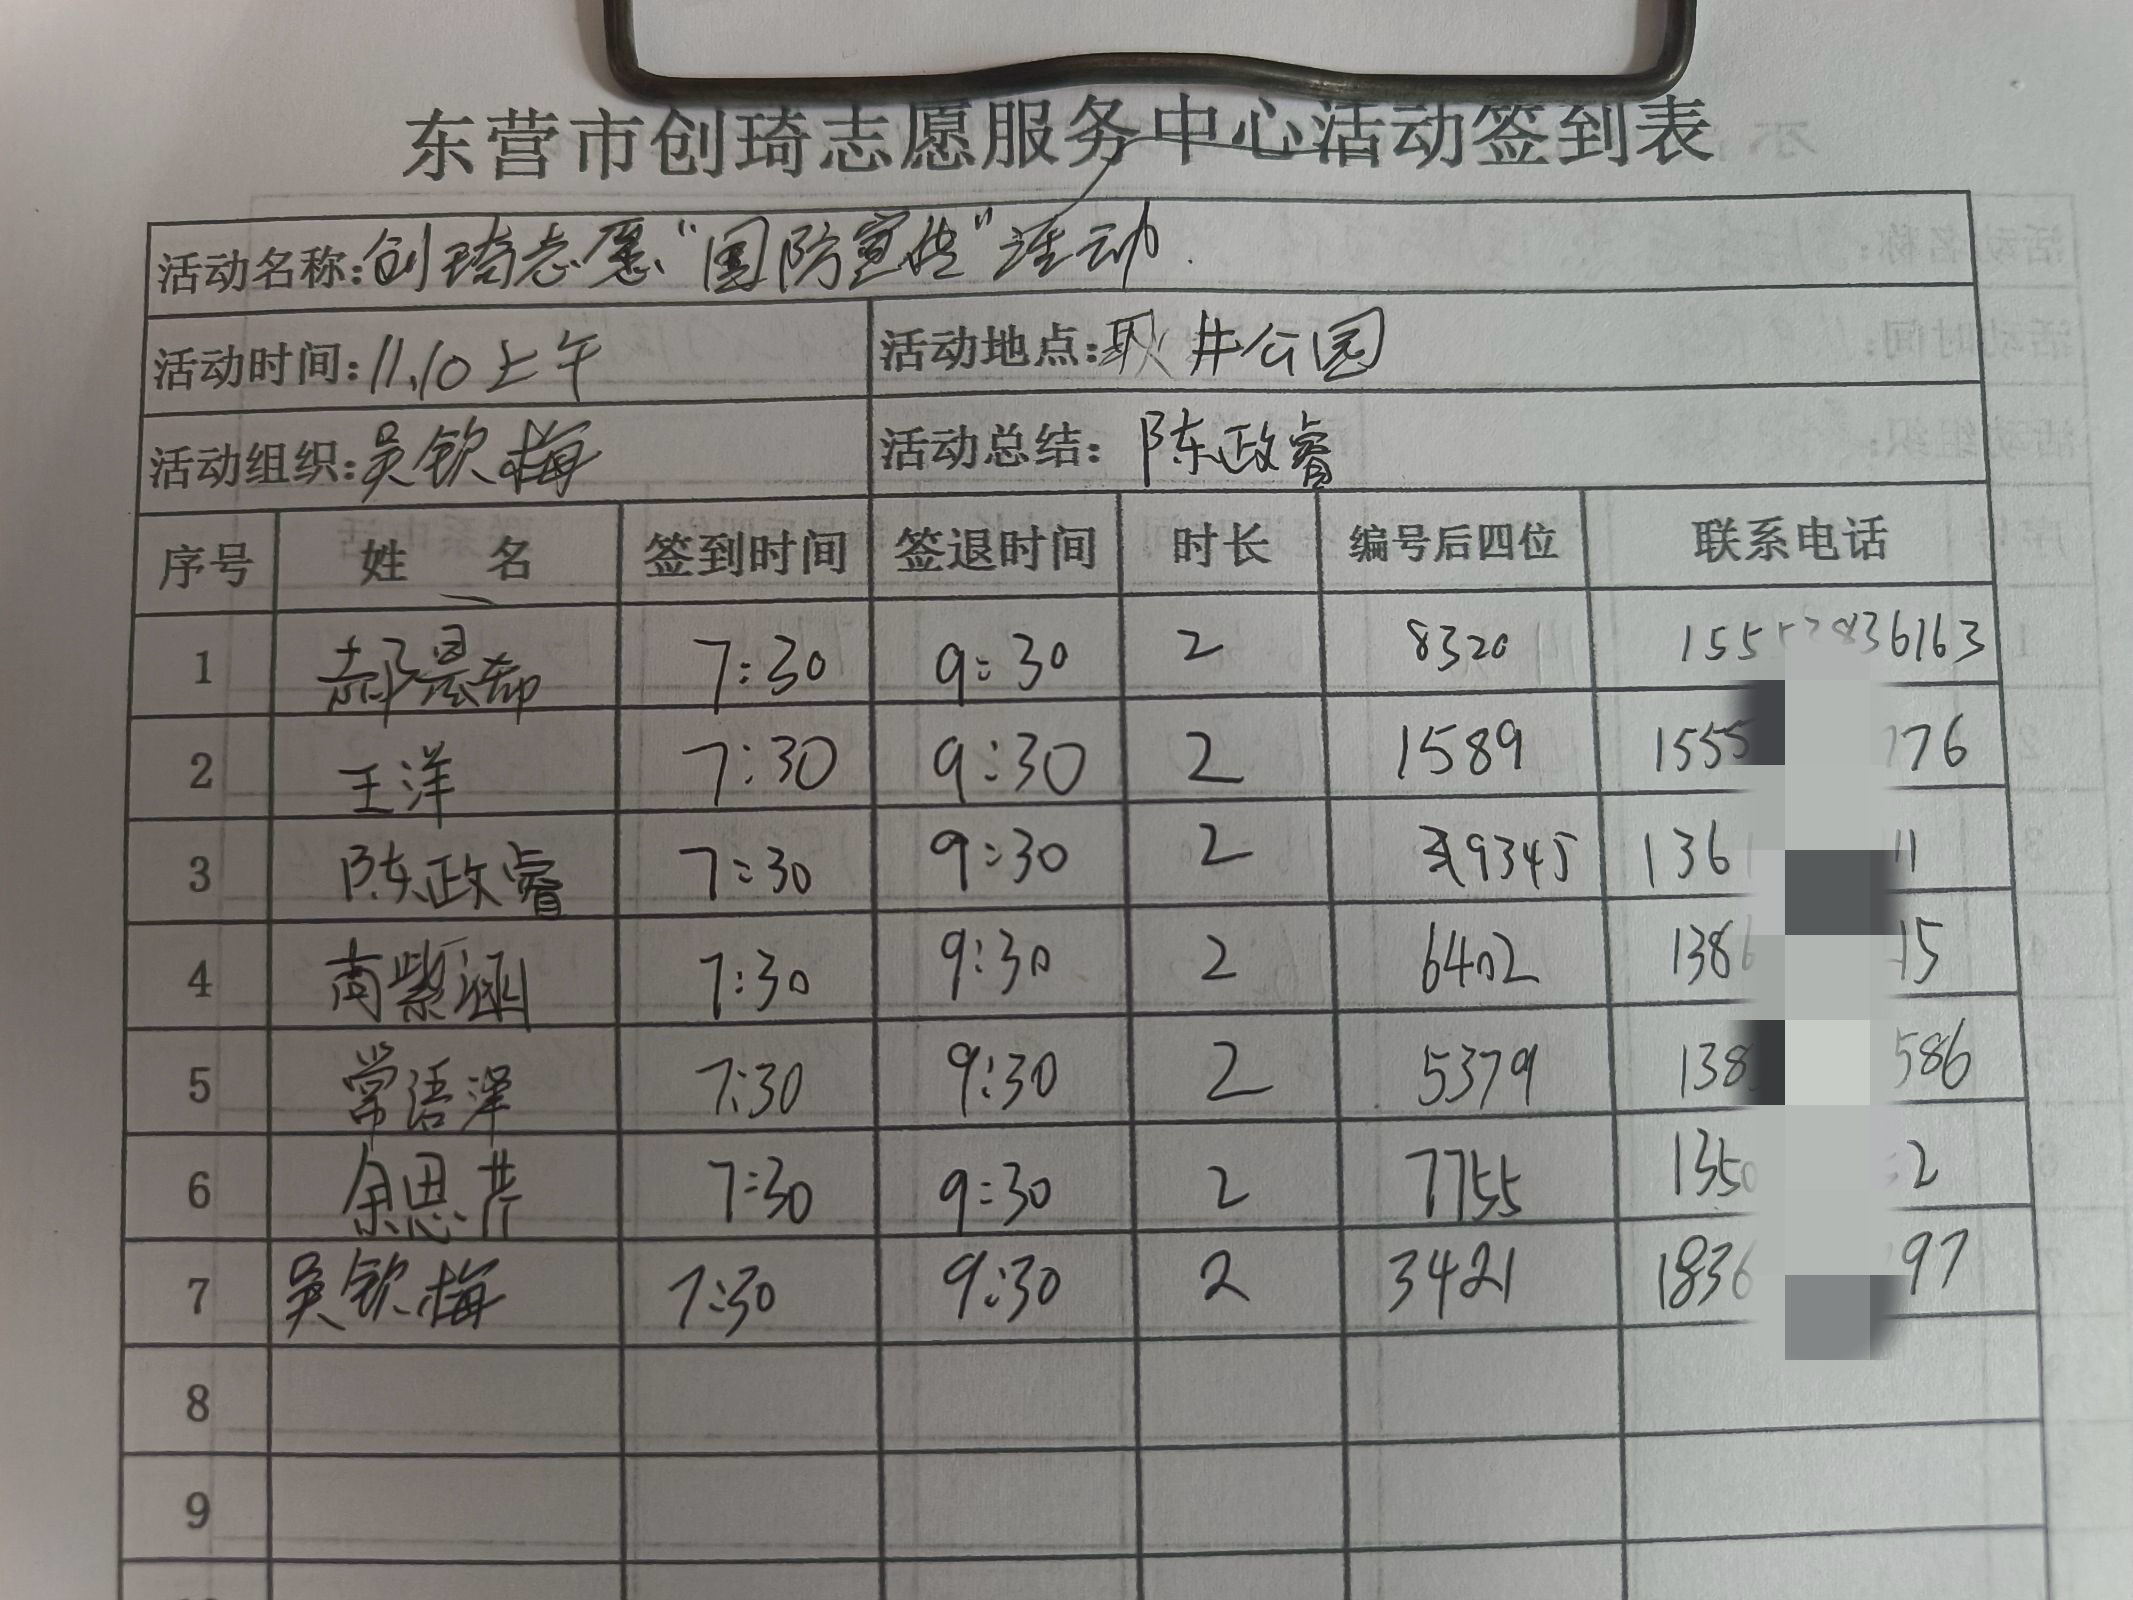 东营市创琦志愿服务中心活动签到表
活动名称:创琦志愿“国防宣传”活动.
活动时间:11.10上午 活动地点:耿井公园
活动组织:吴钦梅 活动总结: 陈政睿
序号 姓 名 签到时间 签退时间 时长 编号后四位 联系电话
1 郝 7:30 9:30 2 8320 155 36163
2 王洋 7:30 9:30 2 1589 1555 76
3 陈政睿 7:30 9:30 2 9345 136 11
4 南紫涵 7:30 9:30 2 6402 138 15
5 常语泽 7:30 9:30 2 5379 138 586
6 余思芹 7:30 9:30 2 7755 1350 2
7 吴钦梅 7:30 9:30 2 3421 1836 97
8
9